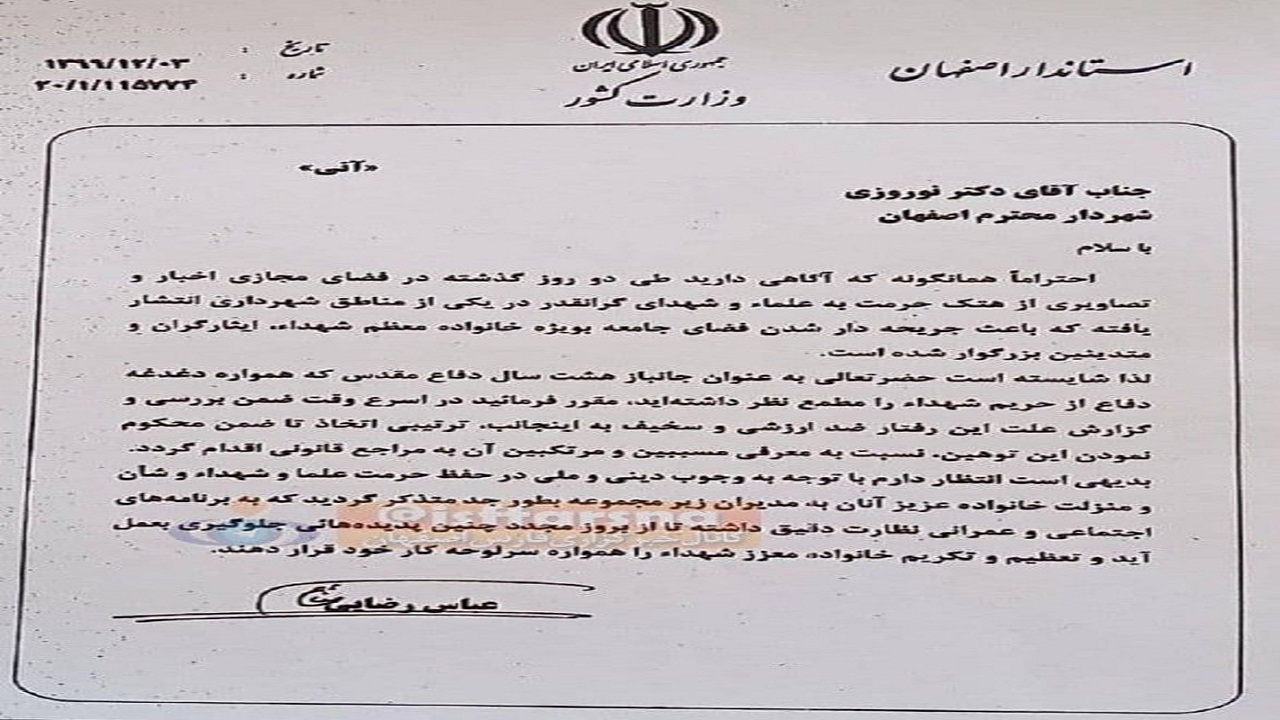 استاندار اصفهان
جمهوری اسلامی ایران
وزارت کشور
تاریخ : ۱۳۹۶/۱۲/۰۳
شماره : ۲۰/۱/۱۱۵۷۷۴
«آنی»
جناب آقای دکتر نوروزی
شهردار محترم اصفهان
با سلام
احتراماً همانگونه که آگاهی دارید طی دو روز گذشته در فضای مجازی اخبار و
تصاویری از هتک حرمت به علماء و شهدای گرانقدر در یکی از مناطق شهرداری انتشار
یافته که باعث جریحه دار شدن فضای جامعه بویژه خانواده معظم شهداء، ایثارگران و
متدینین بزرگوار شده است.
لذا شایسته است حضرتعالی به عنوان جانباز هشت سال دفاع مقدس که همواره دغدغه
دفاع از حریم شهداء را مطمع نظر داشته‌اید، مقرر فرمائید در اسرع وقت ضمن بررسی و
گزارش علت این رفتار ضد ارزشی و سخیف به اینجانب، ترتیبی اتخاذ تا ضمن محکوم
نمودن این توهین، نسبت به معرفی مسببین و مرتکبین آن به مراجع قانونی اقدام گردد.
بدیهی است انتظار دارم با توجه به وجوب دینی و ملی در حفظ حرمت علما و شهداء و شأن
و منزلت خانواده عزیز آنان به مدیران زیر مجموعه بطور جد متذکر گردید که به برنامه‌های
اجتماعی و عمرانی نظارت دقیق داشته تا از بروز مجدد چنین پدیده‌هائی جلوگیری بعمل
آید و تعظیم و تکریم خانواده معزز شهداء را همواره سرلوحه کار خود قرار دهند.
عباس رضایی
@isffarsna
کانال خبرگزاری فارس اصفهان